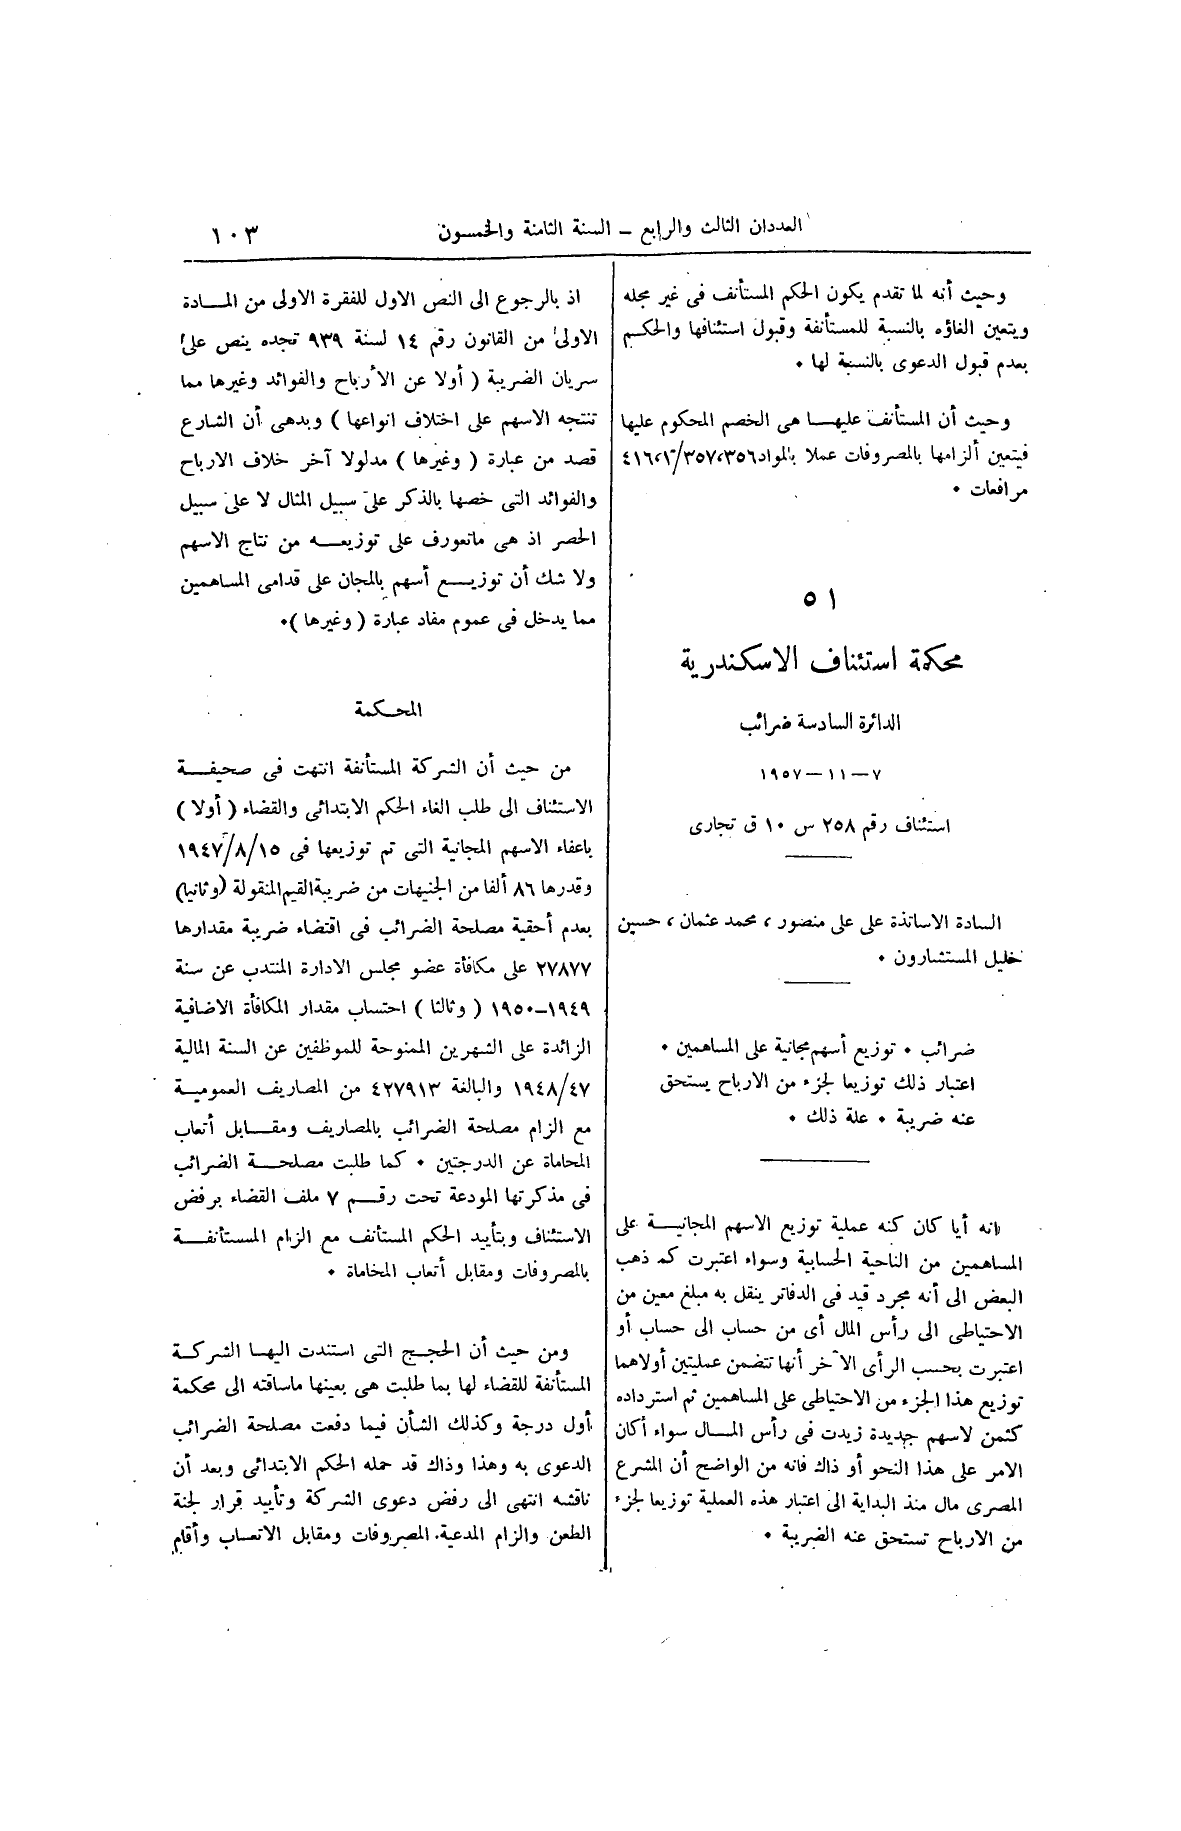 العددان الثالث والرابع – السنة الثامنة والخمسون
١٠٣
وحيث أنه لما تقدم يكون الحكم المستأنف فى غير محله
ويتعين الغاؤه بالنسبة للمستأنفة وقبول استئنافها والحكم
بعدم قبول الدعوى بالنسبة لها ٠
وحيث أن المستأنف عليها هى الخصم المحكوم عليها
فيتعين ألزامها بالمصروفات عملا بالمواد ٣٥٦،٣٥٧/١،٤١٦
مرافعات ٠
٥١
محكمة استئناف الاسكندرية
الدائرة السادسة ضرائب
٧–١١–١٩٥٧
استئناف رقم ٢٥٨ س ١٠ ق تجارى
السادة الاساتذة على على منصور ، محمد عثمان ، حسين
خليل المستشارون ٠
ضرائب ٠ توزيع أسهم مجانية على المساهمين ٠
اعتبار ذلك توزيعا لجزء من الارباح يستحق
عنه ضريبة ٠ علة ذلك ٠
انه أيا كان كنه عملية توزيع الاسهم المجانية على
المساهمين من الناحية الحسابية وسواء اعتبرت كم ذهب
البعض الى أنه مجرد قيد فى الدفاتر ينقل به مبلغ معين من
الاحتياطى الى رأس المال أى من حساب الى حساب أو
اعتبرت بحسب الرأى الآخر أنها تتضمن عمليتين أولاهما
توزيع هذا الجزء من الاحتياطى على المساهمين ثم استرداده
كثمن لاسهم جديدة زيدت فى رأس المال سواء أكان
الامر على هذا النحو أو ذاك فانه من الواضح أن المشرع
المصرى مال منذ البداية الى اعتبار هذه العملية توزيعا لجزء
من الارباح تستحق عنه الضريبة ٠
اذ بالرجوع الى النص الاول للفقرة الاولى من المادة
الاولى من القانون رقم ١٤ لسنة ٩٣٩ تجده ينص على
سريان الضريبة ( أولا عن الأرباح والفوائد وغيرها مما
تنتجه الاسهم على اختلاف انواعها ) وبدهى أن الشارع
قصد من عبارة ( وغيرها ) مدلولا آخر خلاف الارباح
والفوائد التى خصها بالذكر على سبيل المثال لا على سبيل
الحصر اذ هى ماتعورف على توزيعه من نتاج الاسهم
ولا شك أن توزيع أسهم بالمجان على قدامى المساهمين
مما يدخل فى عموم مفاد عبارة ( وغيرها )٠
المحكمة
من حيث أن الشركة المستأنفة انتهت فى صحيفة
الاستئناف الى طلب الغاء الحكم الابتدائى والقضاء ( أولا )
باعفاء الاسهم المجانية التى تم توزيعها فى ١٩٤٧/٨/١٥
وقدرها ٨٦ ألفا من الجنيهات من ضريبة القيم المنقولة (وثانيا)
بعدم أحقية مصلحة الضرائب فى اقتضاء ضريبة مقدارها
٢٧٨٧٧ على مكافأة عضو مجلس الادارة المنتدب عن سنة
١٩٤٩–١٩٥٠ ( وثالثا ) احتساب مقدار المكافأة الاضافية
الزائدة على الشهرين الممنوحة للموظفين عن السنة المالية
١٩٤٨/٤٧ والبالغة ٤٢٧٩١٣ من المصاريف العمومية
مع الزام مصلحة الضرائب بالمصاريف ومقابل أتعاب
المحاماة عن الدرجتين ٠ كما طلبت مصلحة الضرائب
فى مذكرتها المودعة تحت رقم ٧ ملف القضاء برفض
الاستئناف وبتأييد الحكم المستأنف مع الزام المستأنفة
بالمصروفات ومقابل أتعاب المحاماة ٠
ومن حيث أن الحجج التى استندت اليها الشركة
المستأنفة للقضاء لها بما طلبت هى بعينها ماساقته الى محكمة
أول درجة وكذلك الشأن فيما دفعت مصلحة الضرائب
الدعوى به وهذا وذاك قد حمله الحكم الابتدائى وبعد أن
ناقشه انتهى الى رفض دعوى الشركة وتأييد قرار لجنة
الطعن والزام المدعية. المصروفات ومقابل الاتعاب وأقام